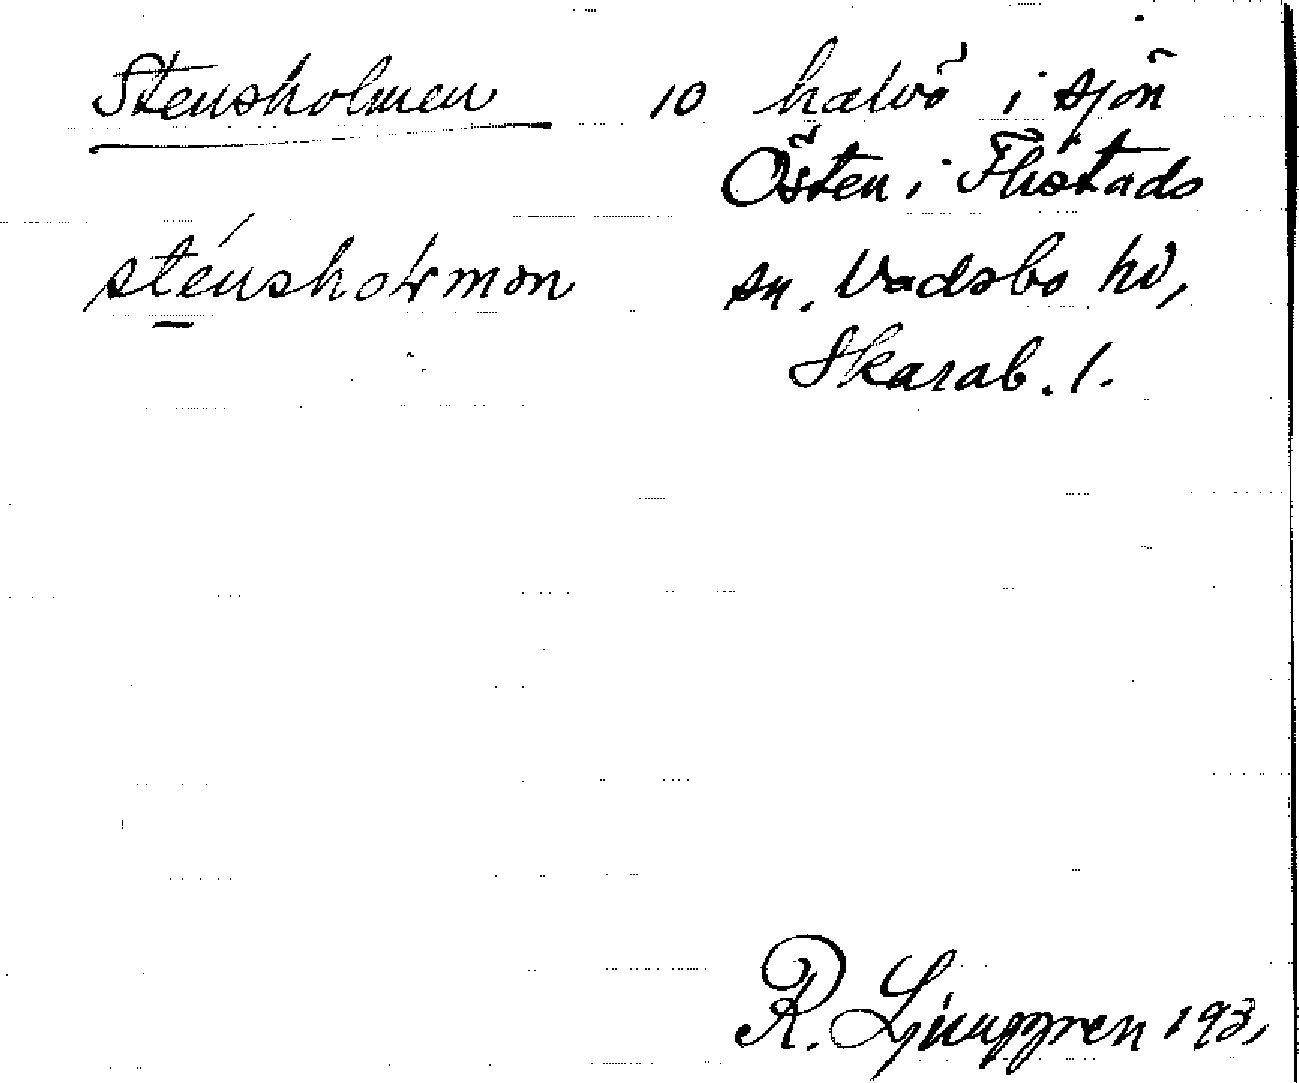 Stensholmen 10 halvö i sjön
Östen i Flistads
sténshoɫmən sn. Vadsbo hd,
Skarab. l.
R. Ljunggren 193